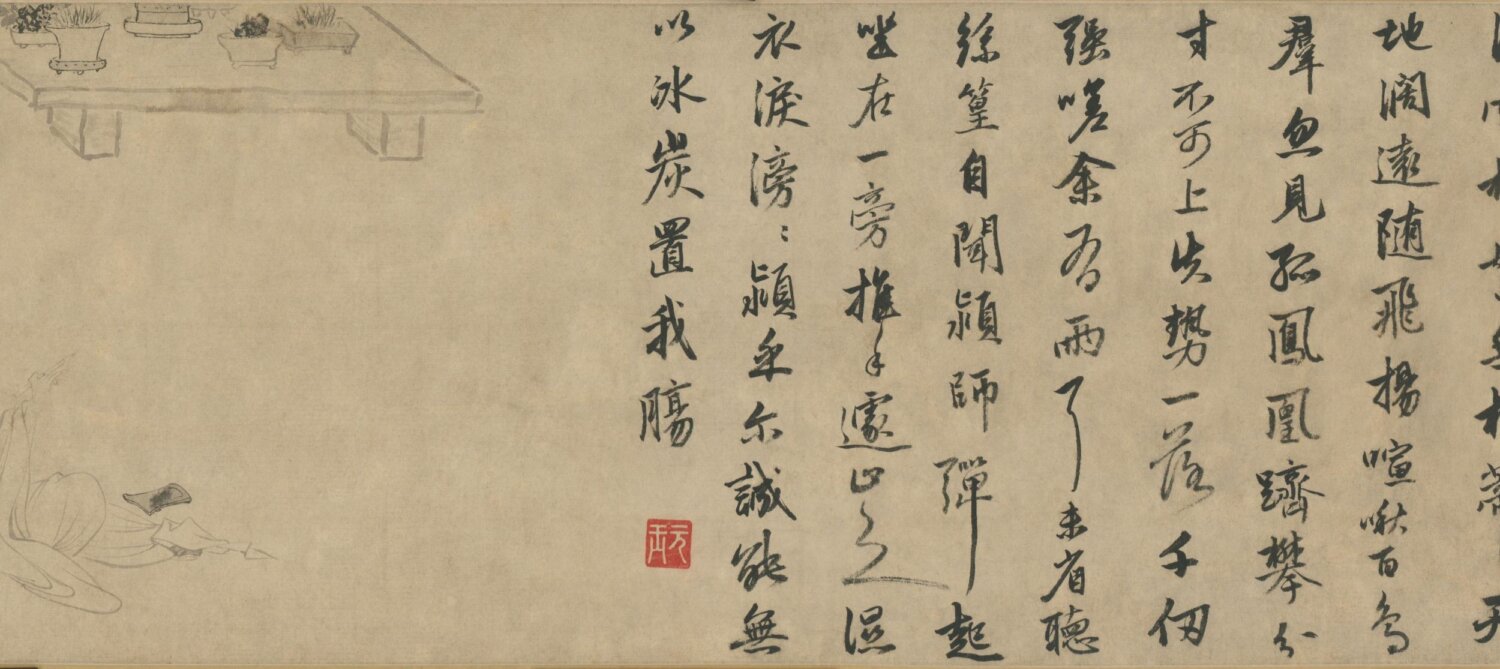 地濶遠随飛揚喧啾百鳥
羣忽見孤鳳凰躋攀分
寸不可上失勢一落千仞
强嗟余有兩耳未省聽
絲篁自聞潁師彈起
坐在一旁推手遽止之濕
衣淚滂〻潁乎尓誠能無
以冰炭置我膓